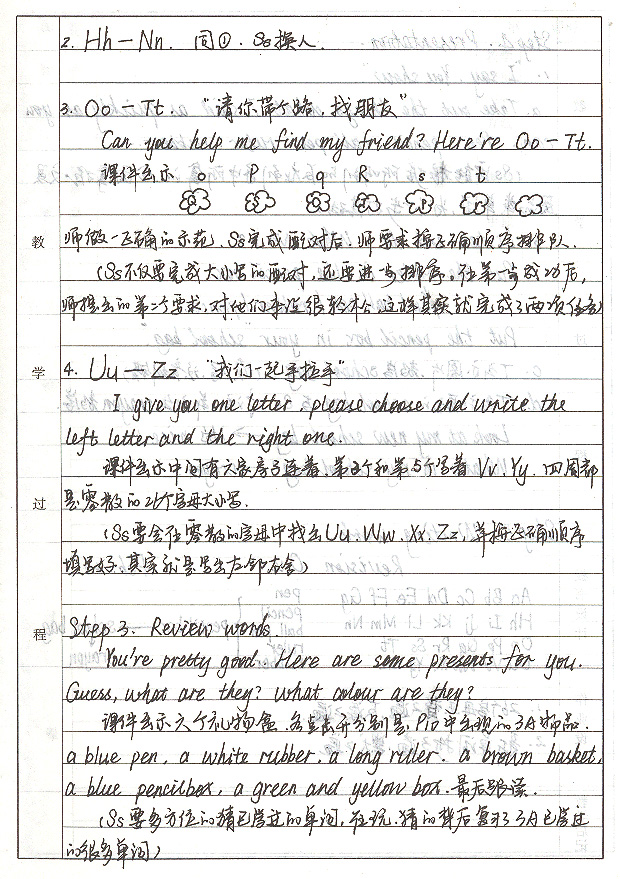 2. Hh — Nn. 同①. Ss换人.
3. Oo — Tt. "请你带个路，找朋友"
Can you help me find my friend? Here're Oo — Tt.
课件出示 o P q R s t
教 师做一正确的示范. Ss完成配对后. 师要求按正确顺序排队.
(Ss不仅要完成大小写的配对, 还要进一步排序. 在第一步成功后,
师提出的第二个要求, 对他们来说很轻松. 这样其实就完成了两项任务)
学 4. Uu — Zz "我们一起手拉手"
I give you one letter, please choose and write the
left letter and the right one.
课件出示中间有六家房子连着. 第2个和第5个写着 Vv. Yy. 四周都
过 是零散的21个字母大小写.
(Ss要会在零散的字母中找出 Uu. Ww. Xx. Zz, 并按正确顺序
填写好. 其实就是写出左邻右舍)
程 Step 3. Review words.
You're pretty good. Here are some presents for you.
Guess, what are they? what colour are they?
课件出示六个礼物盒. 点击开分别是, P10中出现的3A物品.
a blue pen, a white rubber, a long ruler. a brown basket,
a blue pencilbox, a green and yellow box. 最后跟读.
(Ss要多方位的猜已学过的单词, 在玩. 猜的背后复习了3A已学过
的很多单词)